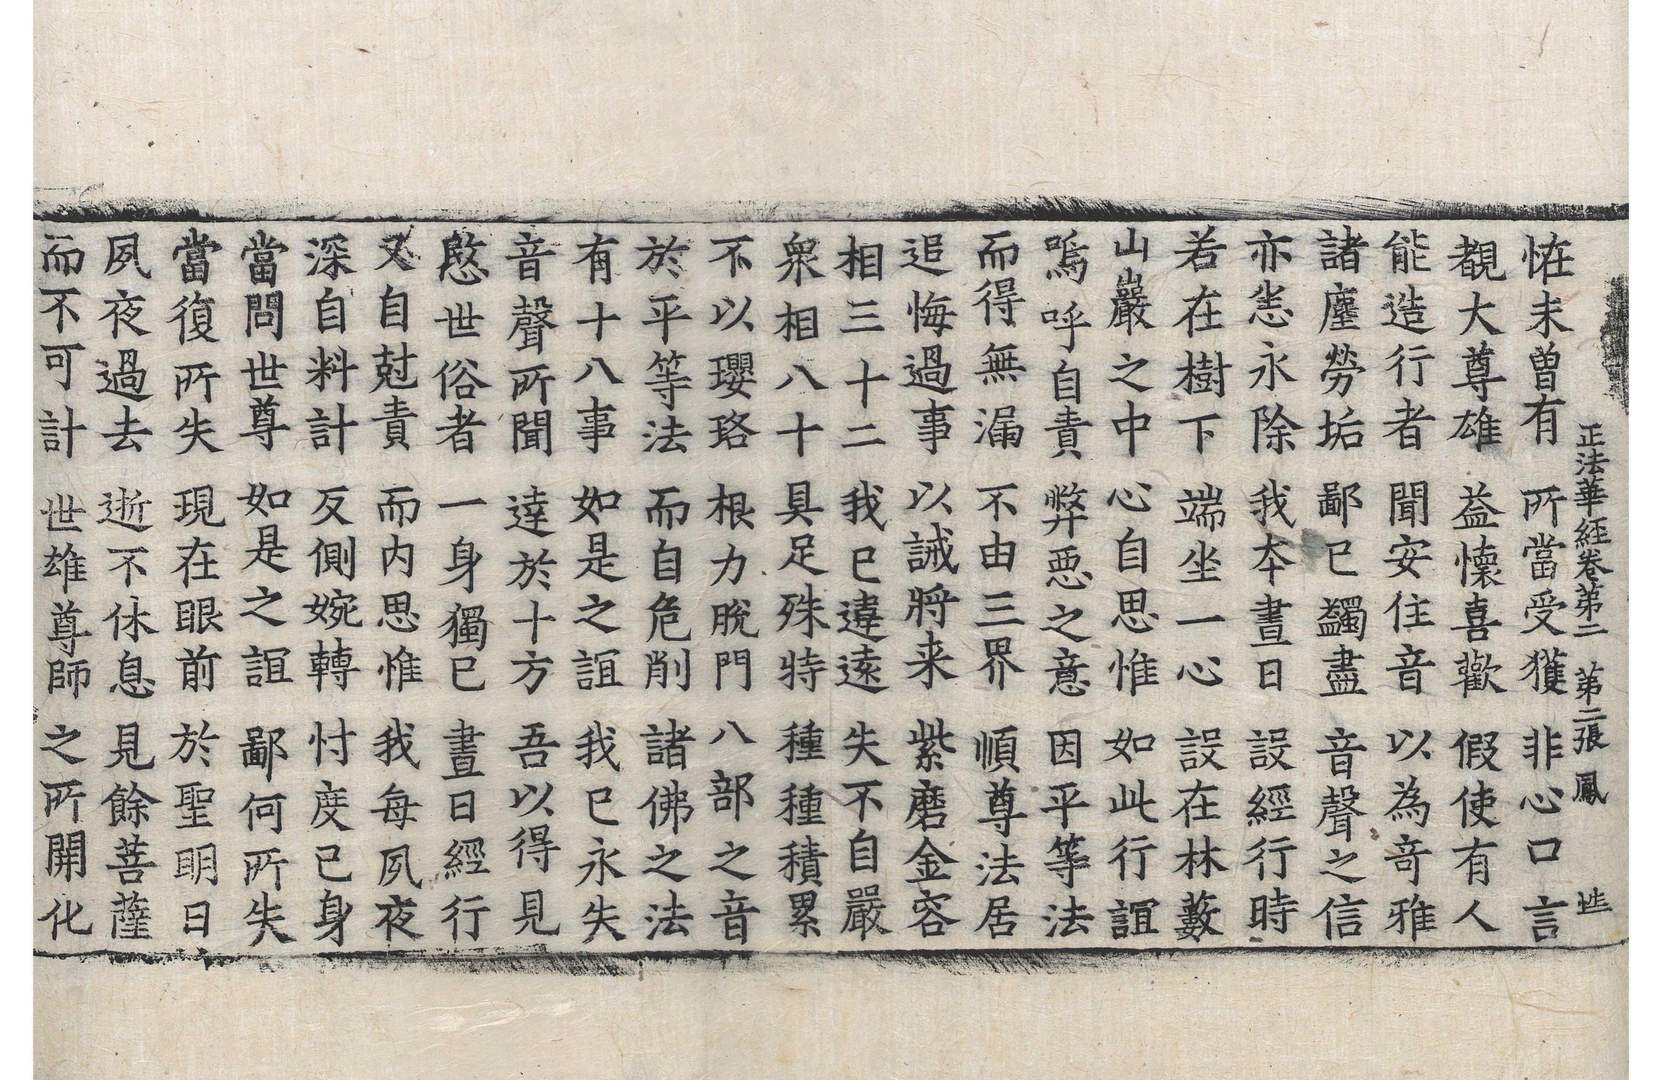 正法華經卷第二 第二張 鳳
恠未曾有 所當受獲 非心口言
覩大尊雄 益懷喜歡 假使有人
能造行者 聞安住音 以為奇雅
諸塵勞垢 鄙已蠲盡 音聲之信
亦恙永除 我本晝日 設經行時
若在樹下 端坐一心 設在林藪
山巖之中 心自思惟 如此行誼
嗚呼自責 弊惡之意 因平等法
而得無漏 不由三界 順尊法居
追悔過事 以誡將来 紫磨金容
相三十二 我已違遠 失不自嚴
衆相八十 具足殊特 種種積累
不以瓔珞 根力脫門 八部之音
於平等法 而自危削 諸佛之法
有十八事 如是之誼 我已永失
音聲所聞 達於十方 吾以得見
愍世俗者 一身獨已 晝日經行
又自尅責 而内思惟 我每夙夜
深自料計 反側婉轉 忖度己身
當問世尊 如是之誼 鄙何所失
當復所失 現在眼前 於聖明日
夙夜過去 逝不休息 見餘菩薩
而不可計 世雄尊師 之所開化